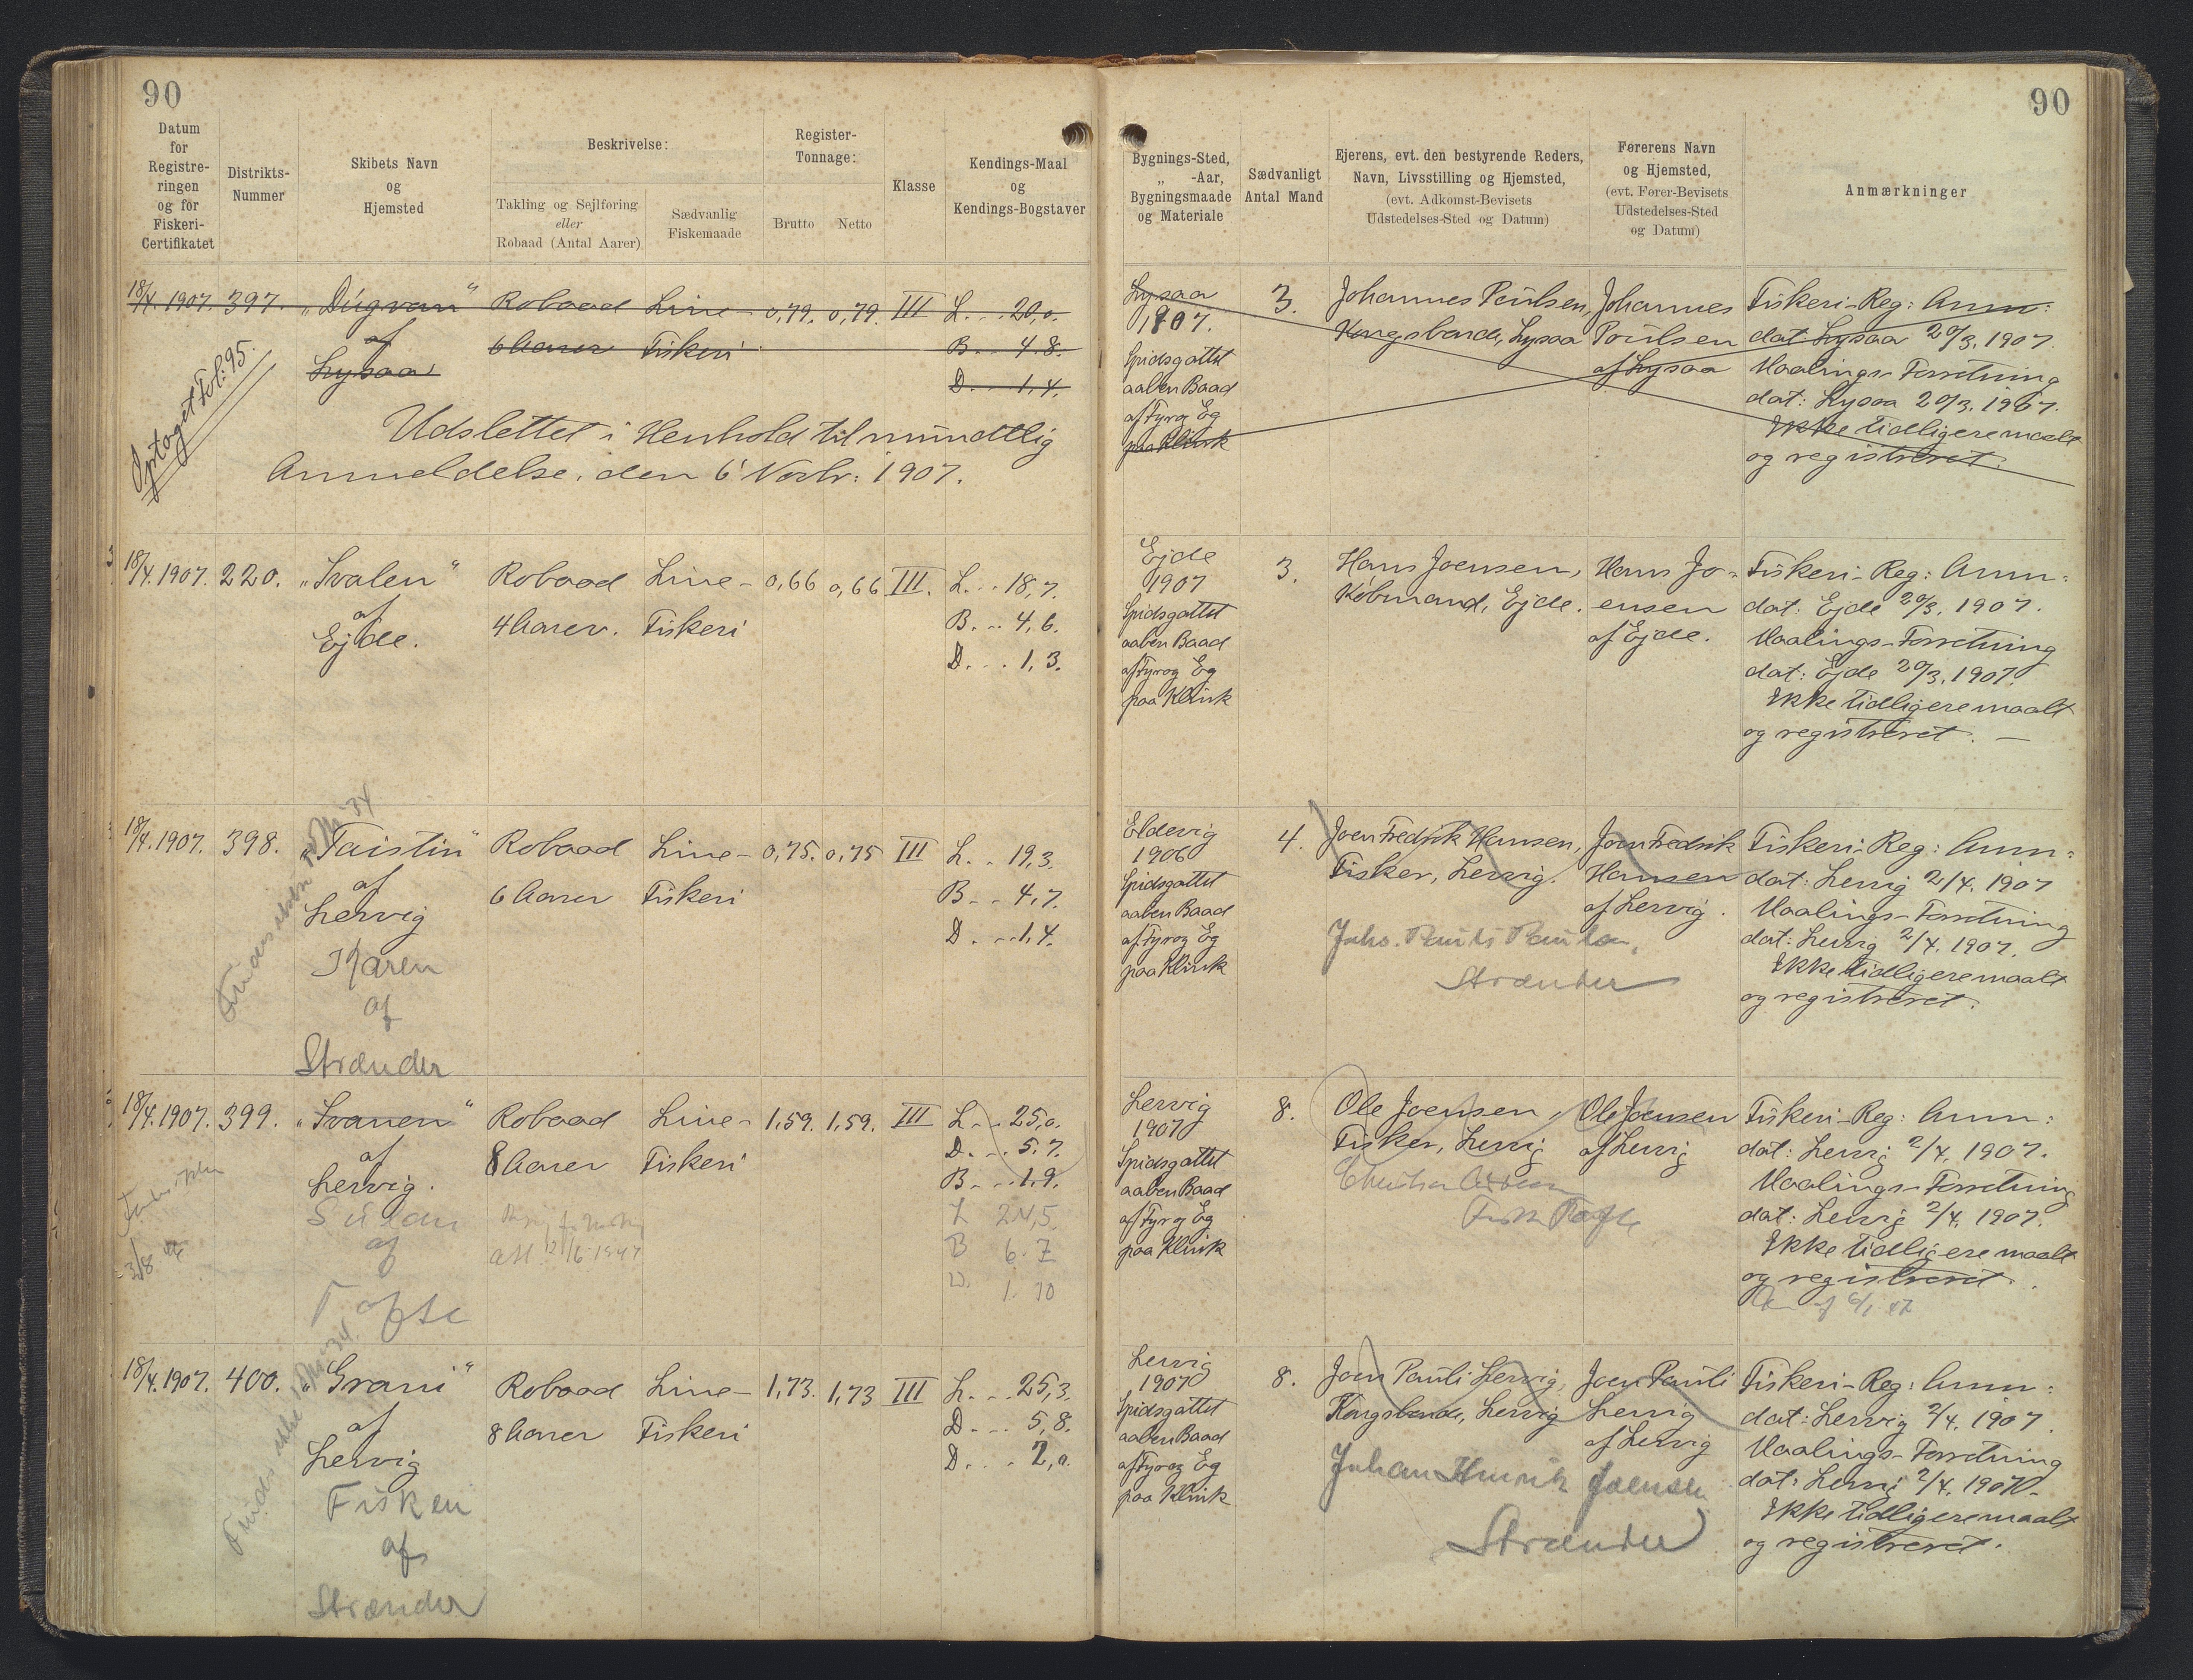 90
90
Datum for Registre-ringen og for Fiskeri-Certifikatet
Distrikts-Nummer
Skibets Navn og Hjemsted
Beskrivelse:
Takling og Sejlføring eller Robaad (Antal Aarer)
Sædvanlig Fiskemaade
Register-Tonnage:
Brutto
Netto
Klasse
Kendings-Maal og Kendings-Bogstaver
Bygnings-Sted, „ -Aar, Bygningsmaade og Materiale
Sædvanligt Antal Mand
Ejerens, evt. den bestyrende Reders, Navn, Livsstilling og Hjemsted, (evt. Adkomst-Bevisets Udstedelses-Sted og Datum)
Førerens Navn og Hjemsted, (evt. Fører-Bevisets Udstedelses-Sted og Datum)
Anmærkninger
18/4. 1907. 397. „Dúgvan“ Robaad Line- 0,79. 0,79. III L... 20,0.
af 6 Aarer Fiskeri B... 4.8.
Lysaa D... 1,4.
Optoget Fol: 95.
Udslettet i Henhold til mundtlig
Anmeldelse, den 6' Novbr: 1907.
Lysaa
1907.
Spidsgattet
aaben Baad
af Fyr og Eg
paa Klink
3.
Johannes Poulsen,
Kongsbonde, Lysaa
Johannes
Poulsen
af Lysaa
Fiskeri-Reg: Anm:
dat: Lysaa 20/3. 1907.
Maalings-Forretning
dat: Lysaa 20/3. 1907.
Ikke tidligere maalt
og registreret.
18/4. 1907. 220. „Svalen“ Robaad Line- 0,66 0,66 III. L... 18,7.
af 4 Aarer. Fiskeri B... 4,6.
Ejde. D... 1,3.
Ejde
1907
Spidsgattet
aaben Baad
af Fyr og Eg
paa Klink
3.
Hans Joensen,
Købmand, Ejde.
Hans Jo-
ensen
af Ejde.
Fiskeri-Reg: Anm:
dat: Ejde 20/3. 1907.
Maalings-Forretning
dat: Ejde 20/3. 1907.
Ikke tidligere maalt
og registreret. —
18/4. 1907. 398. „Taistin“ Robaad Line- 0,75. 0,75 III L.. 19,3.
af 6 Aarer Fiskeri B.. 4,7.
Lervig D... 1,4.
Karen
af
Strænder
Eldevig
1906
Spidsgattet
aaben Baad
af Fyr og Eg
paa Klink
4.
Joen Fredrik Hansen,
Fisker, Lervig.
Johs. Pauli Paulsen,
Strænder
Joen Fredrik
Hansen
af Lervig.
Fiskeri-Reg: Anm:
dat: Lervig 2/4. 1907
Maalings-Forretning
dat: Lervig 2/4. 1907.
Ikke tidligere maalt
og registreret.
18/4. 1907. 399. „Svanen“ Robaad Line- 1,59. 1,59. III L... 25,0.
af 8 Aarer Fiskeri D... 5.7.
Lervig. B... 1.9.
af
Tofte
L 24,5
B 6.7
D. 1.10
Lervig
1907
Spidsgattet
aaben Baad
af Fyr og Eg
paa Klink
8.
Ole Joensen,
Fisker, Lervig
Ole Joensen
af Lervig
Fiskeri-Reg: Anm:
dat: Lervig 2/4. 1907.
Maalings-Forretning
dat: Lervig 2/4. 1907.
Ikke tidligere maalt
og registreret.
18/4. 1907. 400. „Grani“ Robaad Line- 1,73. 1,73 III L... 25,3.
af 8 Aarer Fiskeri D... 5,8.
Lervig D.... 2,0.
Fisken
af
Strænder
Lervig
1907
Spidsgattet
aaben Baad
af Fyr og Eg
paa Klink
8.
Joen Pauli Lervig,
Kongsbonde, Lervig
Johan Hendrik Joensen
Strænder
Joen Pauli
Lervig
af Lervig
Fiskeri-Reg: Anm:
dat: Lervig 2/4. 1907.
Maalings-Forretning
dat: Lervig 2/4. 1907.
Ikke tidligere maalt
og registreret.